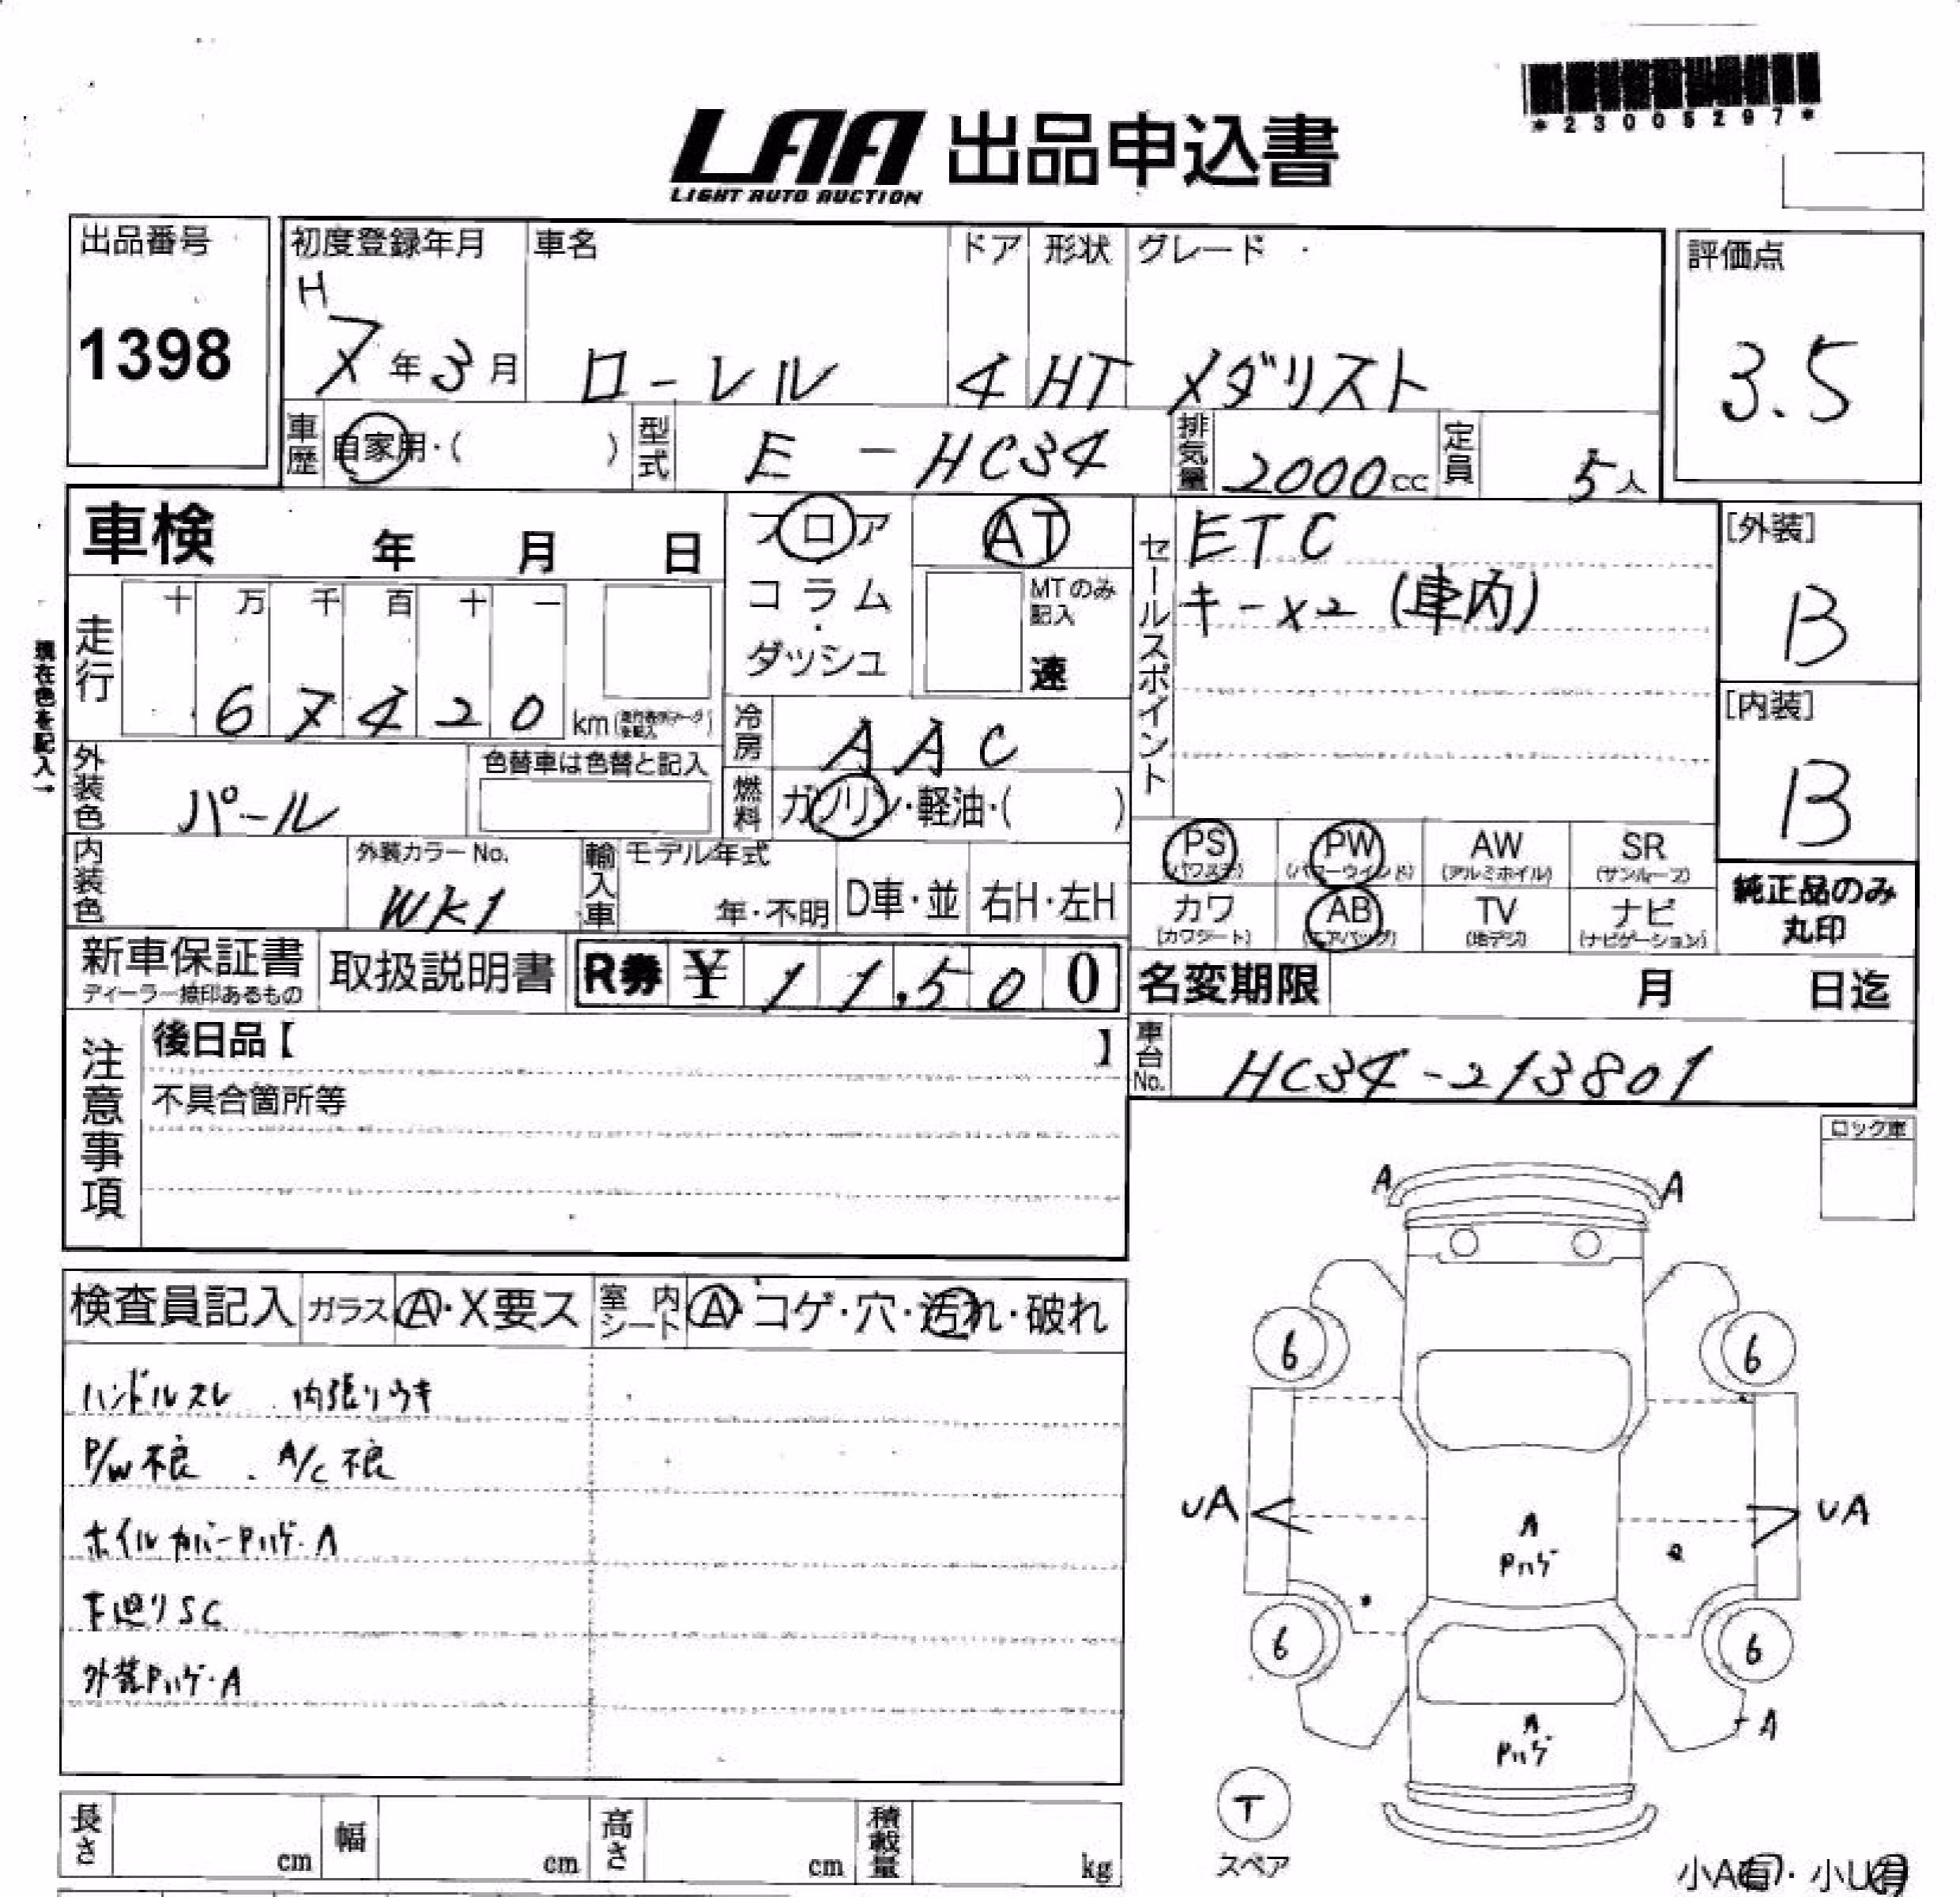 *23005297*
LAA 出品申込書
LIGHT AUTO AUCTION
出品番号
1398
初度登録年月
H
7年3月
車名
ローレル
ドア
4
形状
HT
グレード
メダリスト
評価点
3.5
車歴
自家用・( )
型式
E - HC34
排気量
2000cc
定員
5人
車検 年 月 日
フロア
コラム
ダッシュ
AT
MTのみ
記入
速
セールスポイント
ETC
キー×2 (車内)
[外装]
B
[内装]
B
現在色を記入→
走行
十 万 千 百 十 一
6 7 4 2 0 km
冷房
AAC
外装色
パール
色替車は色替と記入
燃料
ガソリン・軽油・( )
内装色
外装カラーNo.
WK1
輸入車
モデル年式
年・不明
D車・並
右H・左H
PS
(パワステ)
PW
(パワーウインド)
AW
(アルミホイル)
SR
(サンルーフ)
カワ
(カワシート)
AB
(エアバッグ)
TV
(地デジ)
ナビ
(ナビゲーション)
純正品のみ
丸印
新車保証書
ディーラー捺印あるもの
取扱説明書
R券 ¥ 11,500
名変期限 月 日迄
注意事項
後日品【 】
不具合箇所等
車台No.
HC34-213801
ロック車
検査員記入
ガラス
A・X要ス
室内シート
A・コゲ・穴・汚れ・破れ
ハンドルスレ 内張リウキ
P/W不良 . A/C不良
ホイルカバーPハゲ・A
下廻リSC
外装Pハゲ・A
A
A
6
6
UA
UA
A
Pハゲ
6
6
A
A
Pハゲ
T
スペア
小A有・小U有
長さ cm
幅 cm
高さ cm
積載量 kg